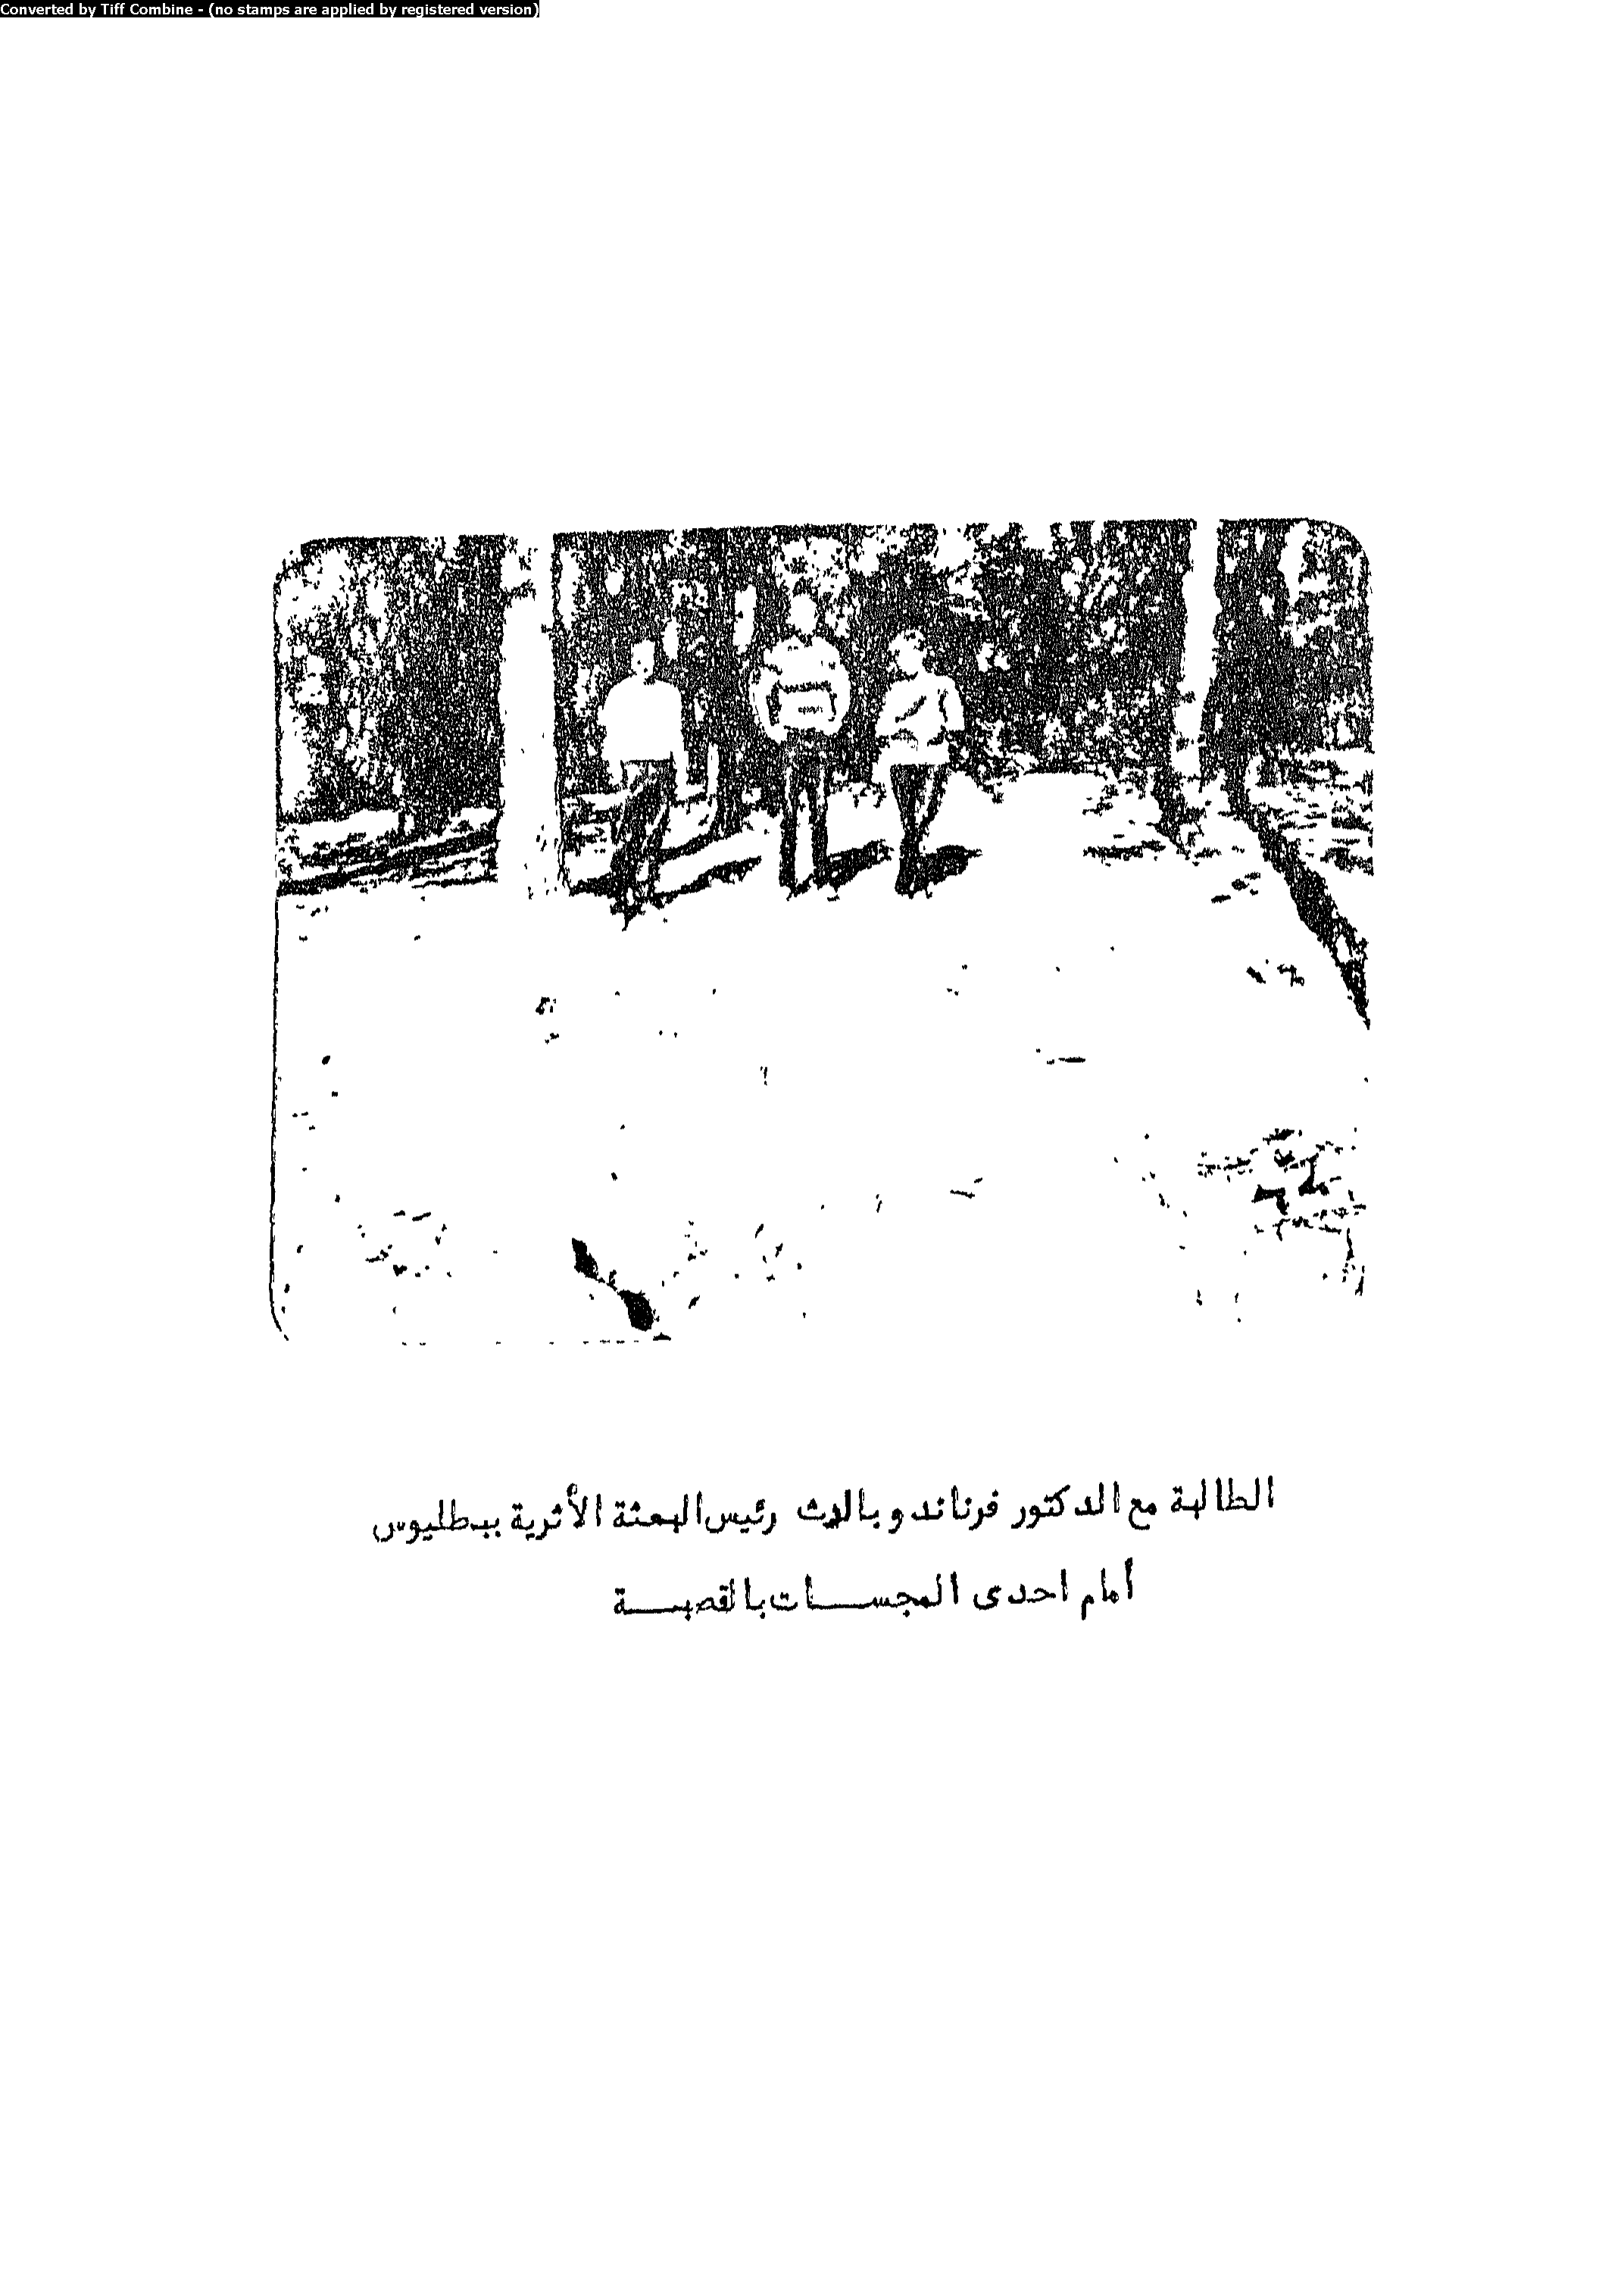 Converted by Tiff Combine - (no stamps are applied by registered version)
الطالبة مع الدكتور فرناندو بالدث رئيس البعثة الأثرية ببطليوس
أمام احدى المجسات بالقصبة